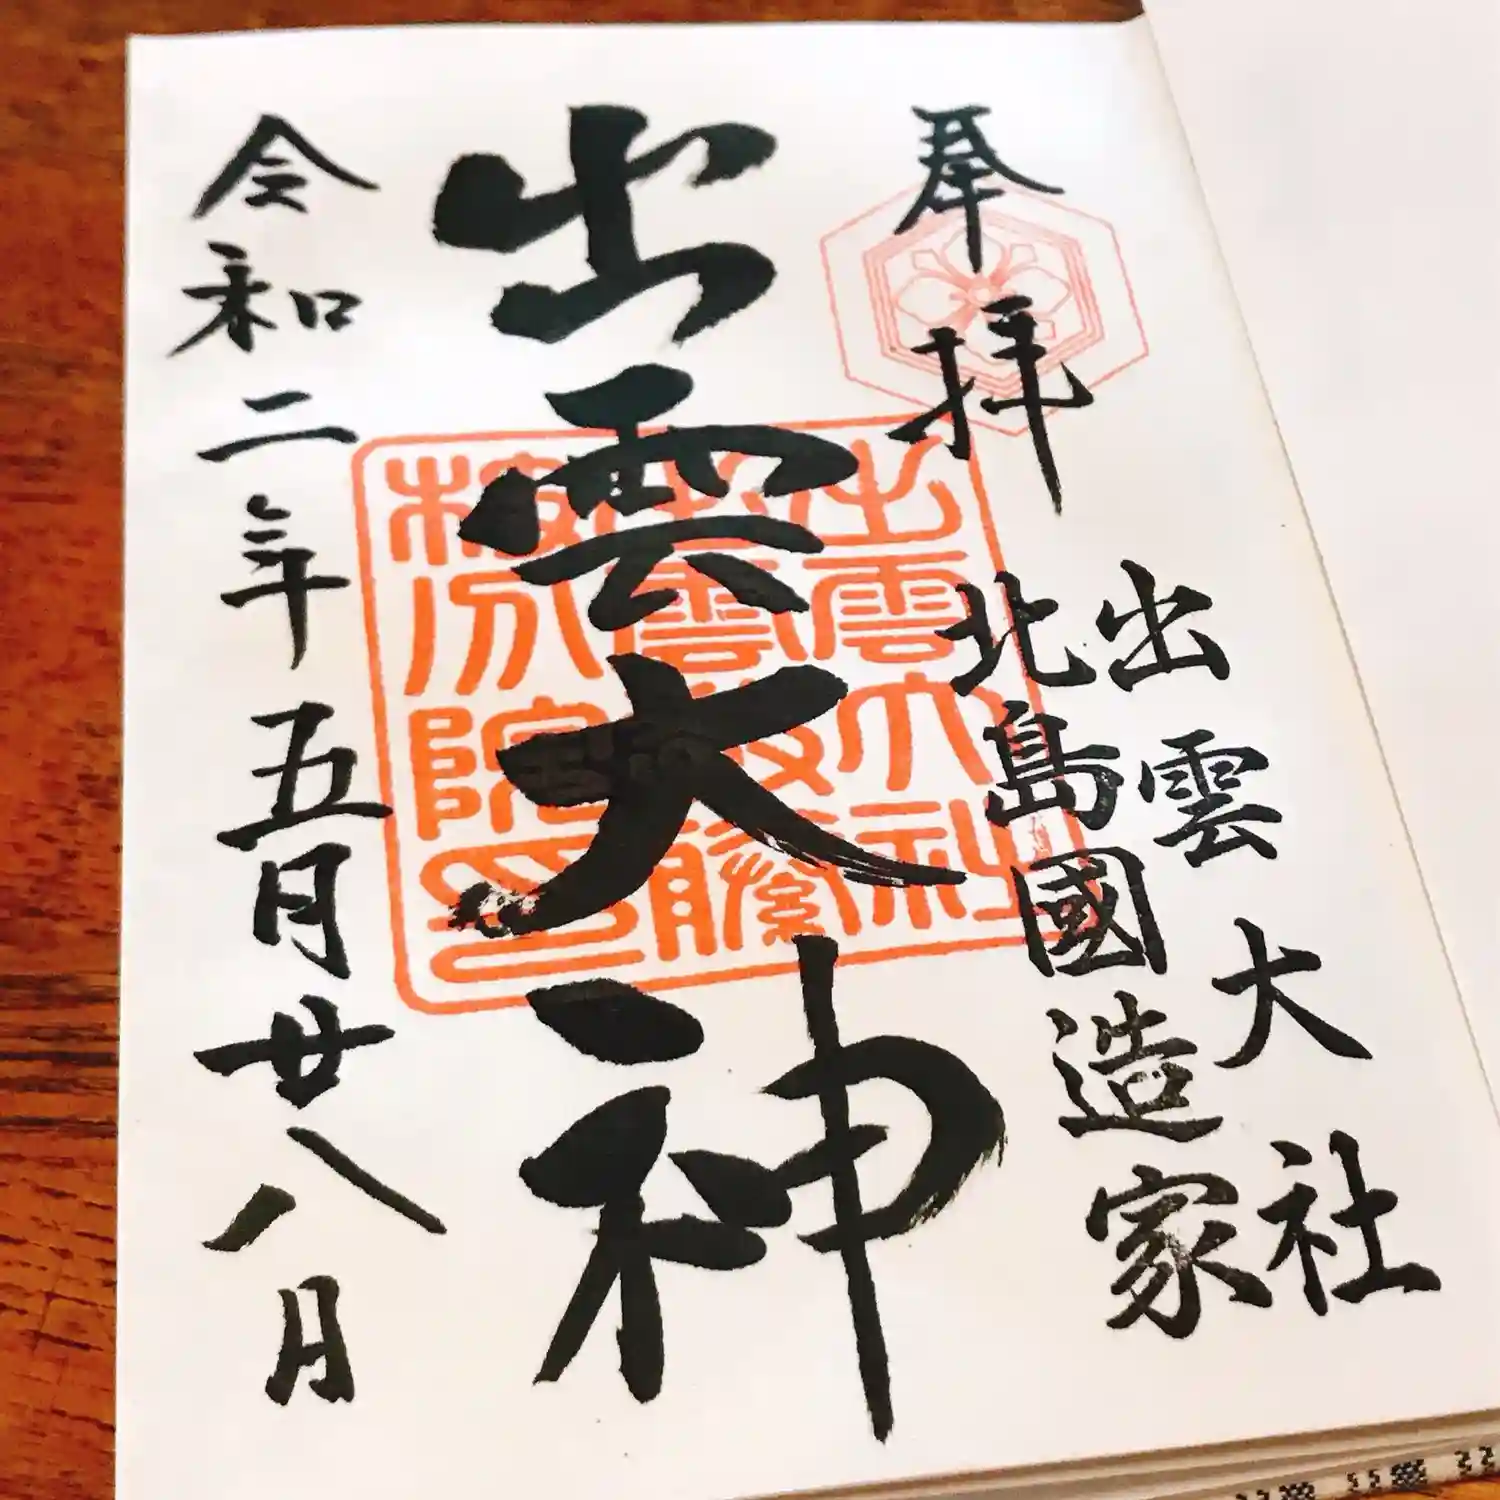 奉拝
出雲大社
北島國造家
出雲大神
出雲大社
出雲教藤
枝分院印
令和二年五月廿八日